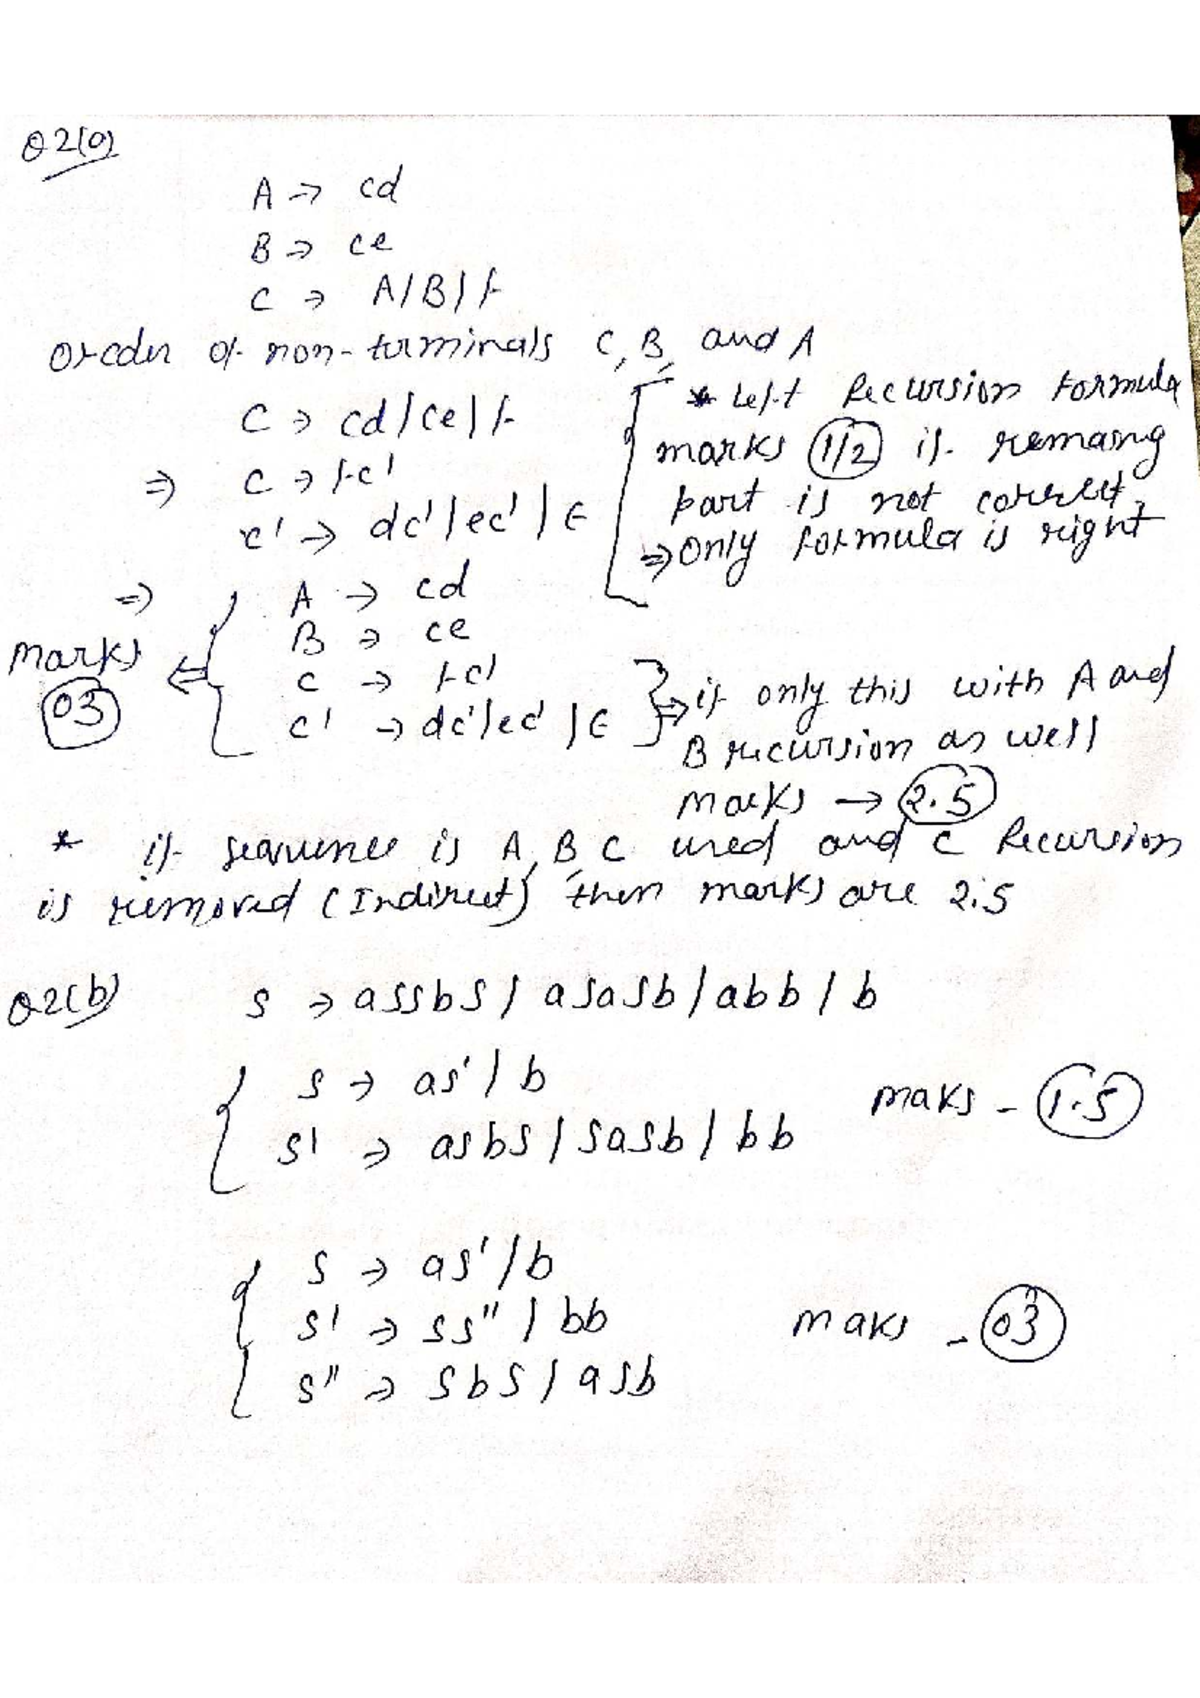 Q2(a)
A → Cd
B → Ce
C → A|B|f
Order of non-terminals C, B, and A
C → Cd|Ce|f
* Left Recursion Formula
marks 1/2 if remaing
part is not correct,
⇒ only formula is right
⇒ C → fC'
C' → dC'|eC'|ϵ
⇒ A → Cd
B → Ce
C → fC'
C' → dC'|eC'|ϵ
marks
03
⇒ if only this with A and
B recursion as well
marks → 2.5
* if sequence is A, B, C used and C Recursion
is removed (Indirect) then marks are 2.5
Q2(b) S → aSSbS | aSaSb | abb | b
S → aS' | b
S' → aSbS | SaSb | bb
maks - 1.5
S → aS' | b
S' → SS" | bb
S" → SbS | aSb
maks - 03